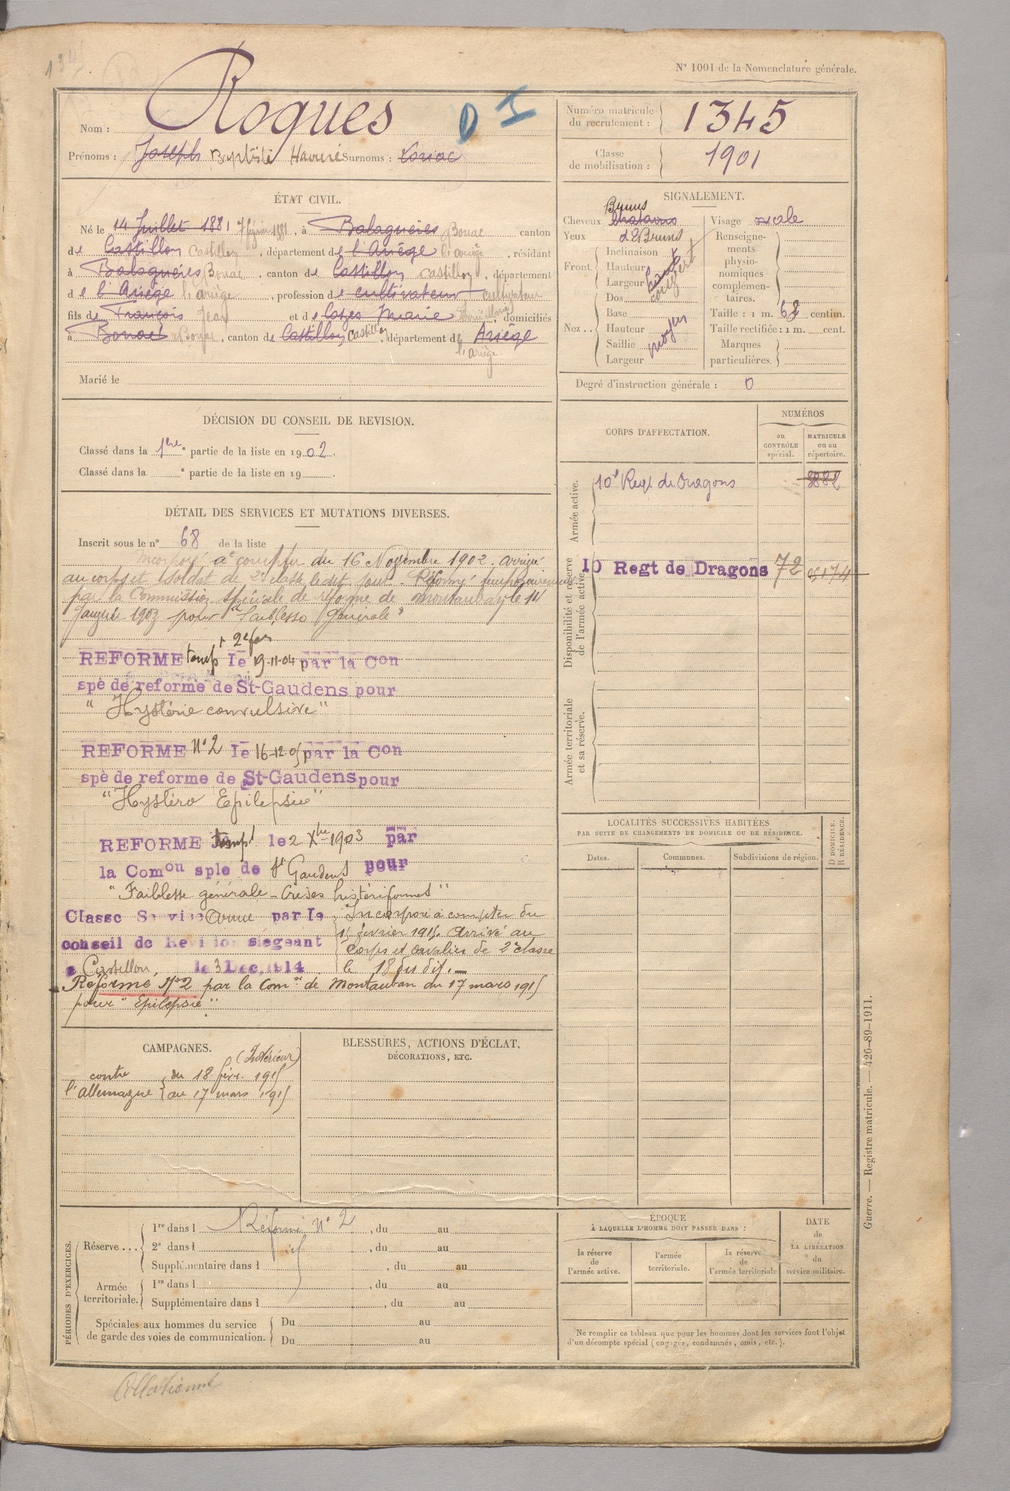 N° 1001 de la Nomenclature générale.
Nom : Roques
D I
Prénoms : Joseph Baptiste Surnoms :
Numéro matricule du recrutement : 1345
Classe de mobilisation : 1901
ÉTAT CIVIL.
Né le 14 Juillet 1881 7 février 1881, à Balaguères Bonac canton
de Castillon Castillon, département de l'Ariège l'ariège, résidant
à Balaguères Bonac, canton de Castillon castillon, département
de l'Ariège l'ariège, profession de cultivateur cultivateur
fils de François Jean et de Marie domiciliés
à Bonac Bonac, canton de Castillon Castillon, département de Ariège
l'ariège
Marié le
SIGNALEMENT.
Cheveux Bruns chatains
Yeux d Bruns
Front. Inclinaison
Hauteur haut
Largeur couvert
Nez... Dos
Base
Hauteur moyen
Saillie
Largeur
Visage ovale
Renseignements physionomiques complémentaires.
Taille : 1 m. 62 centim.
Taille rectifiée : 1 m. cent.
Marques particulières.
Degré d'instruction générale : 0
DÉCISION DU CONSEIL DE REVISION.
Classé dans la 1ère partie de la liste en 1902.
Classé dans la e partie de la liste en 19
CORPS D'AFFECTATION.
NUMÉROS
au CONTRÔLE spécial.
MATRICULE ou au répertoire.
Armée active.
10e Regt de Dragons
Disponibilité et réserve de l'armée active.
10 Regt de Dragons 72
Armée territoriale et sa réserve.
DÉTAIL DES SERVICES ET MUTATIONS DIVERSES.
Inscrit sous le n° 68 de la liste
Incorporé à compter du 16 Novembre 1902, arrivé
au corps et soldat de 2e classe le dit jour. Réformé temporairement
par la Commission Spéciale de réforme de Montauban le 14
Janvier 1903 pour "faiblesse générale"
2e fois
REFORME temp le 19-11-04 par la Con
spè de reforme de St-Gaudens pour
"Hystérie convulsive"
REFORME N°2 le 16-12-05 par la Con
spè de reforme de St-Gaudens pour
"Hystéro Epilepsie"
REFORME temp le 2 Xbre 1903 par
la Comon sple de St Gaudens pour
"Faiblesse générale - Crises hystériformes"
Classé Service Armé par le
conseil de Revision siégeant
à Castillon, le 3 Dec. 1914
Incorporé à compter du
février 1915. Arrivé au
Corps et Cavalier de 2e classe
le 18 du dit.
Réforme N°2 par la Comon de Montauban du 17 mars 1915
pour "Epilepsie"
LOCALITÉS SUCCESSIVES HABITÉES
PAR SUITE DE CHANGEMENTS DE DOMICILE OU DE RÉSIDENCE.
Dates.
Communes.
Subdivisions de région.
D DOMICILE. R RÉSIDENCE.
CAMPAGNES.
(Intérieur)
contre l'allemagne
du 18 févr. 1915
au 17 mars 1915
BLESSURES, ACTIONS D'ÉCLAT,
DÉCORATIONS, ETC.
PÉRIODES D'EXERCICES.
Réserve...
1re dans l Réformé N° 2, du au
2e dans l, du au
Supplémentaire dans l, du au
Armée territoriale.
1re dans l, du au
Supplémentaire dans l, du au
Spéciales aux hommes du service
de garde des voies de communication.
Du au
Du au
ÉPOQUE
À LAQUELLE L'HOMME DOIT PASSER DANS :
la réserve de l'armée active.
l'armée territoriale.
la réserve de l'armée territoriale
DATE de LA LIBÉRATION du service militaire.
Ne remplir ce tableau que pour les hommes dont les services font l'objet
d'un décompte spécial (engagés, condamnés, omis, etc.).
Guerre. — Registre matricule. — 426-89-1911.
Collationné